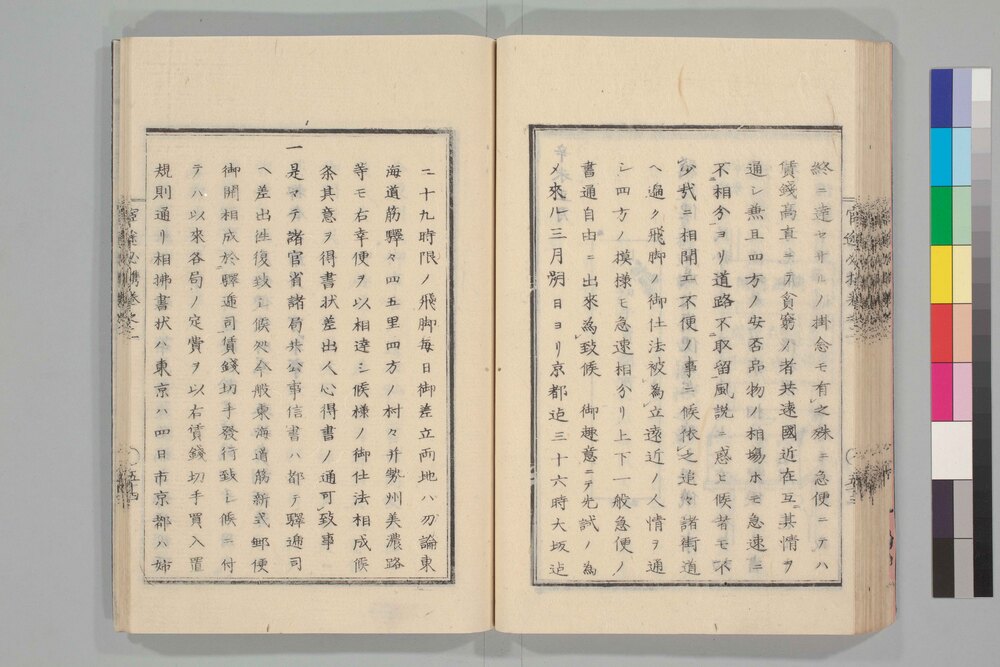 終ニ達セサルノ掛念モ有之殊ニ急便ニテハ
賃錢高直ニテ貧窮ノ者共遠國近在互其情ヲ
通シ兼且四方ノ安否品物ノ相場ホモ急速ニ
不相分ヨリ道路不取留風説ニ惑ヒ候者モ不
少哉ニ相聞エ不便ノ事ニ候依之追々諸街道
ヘ遍ク飛脚ノ御仕法被為立遠近ノ人情ヲ通
シ四方ノ模様モ急速相分リ上下一般急便ノ
書通自由ニ出來為致候御趣意ニテ先試ノ為
メ來ル三月朔日ヨリ京都迠三十六時大坂迠
二十九時限ノ飛脚毎日御差立両地ハ勿論東
海道筋驛々四五里四方ノ村々并勢州美濃路
等モ右幸便ヲ以相達シ候様ノ御仕法相成候
条其意ヲ得書状差出人心得書ノ通可致事
一是マテ諸官省諸局共公事信書ハ都テ驛逓司
ヘ差出徃復致シ候処今般東海道筋新式郵便
御開相成於驛逓司賃錢切手發行致シ候ニ付
テハ以來各局ノ定費ヲ以右賃錢切手買入置
規則通リ相拂書状ハ東京ハ四日市京都ハ姉
五十四